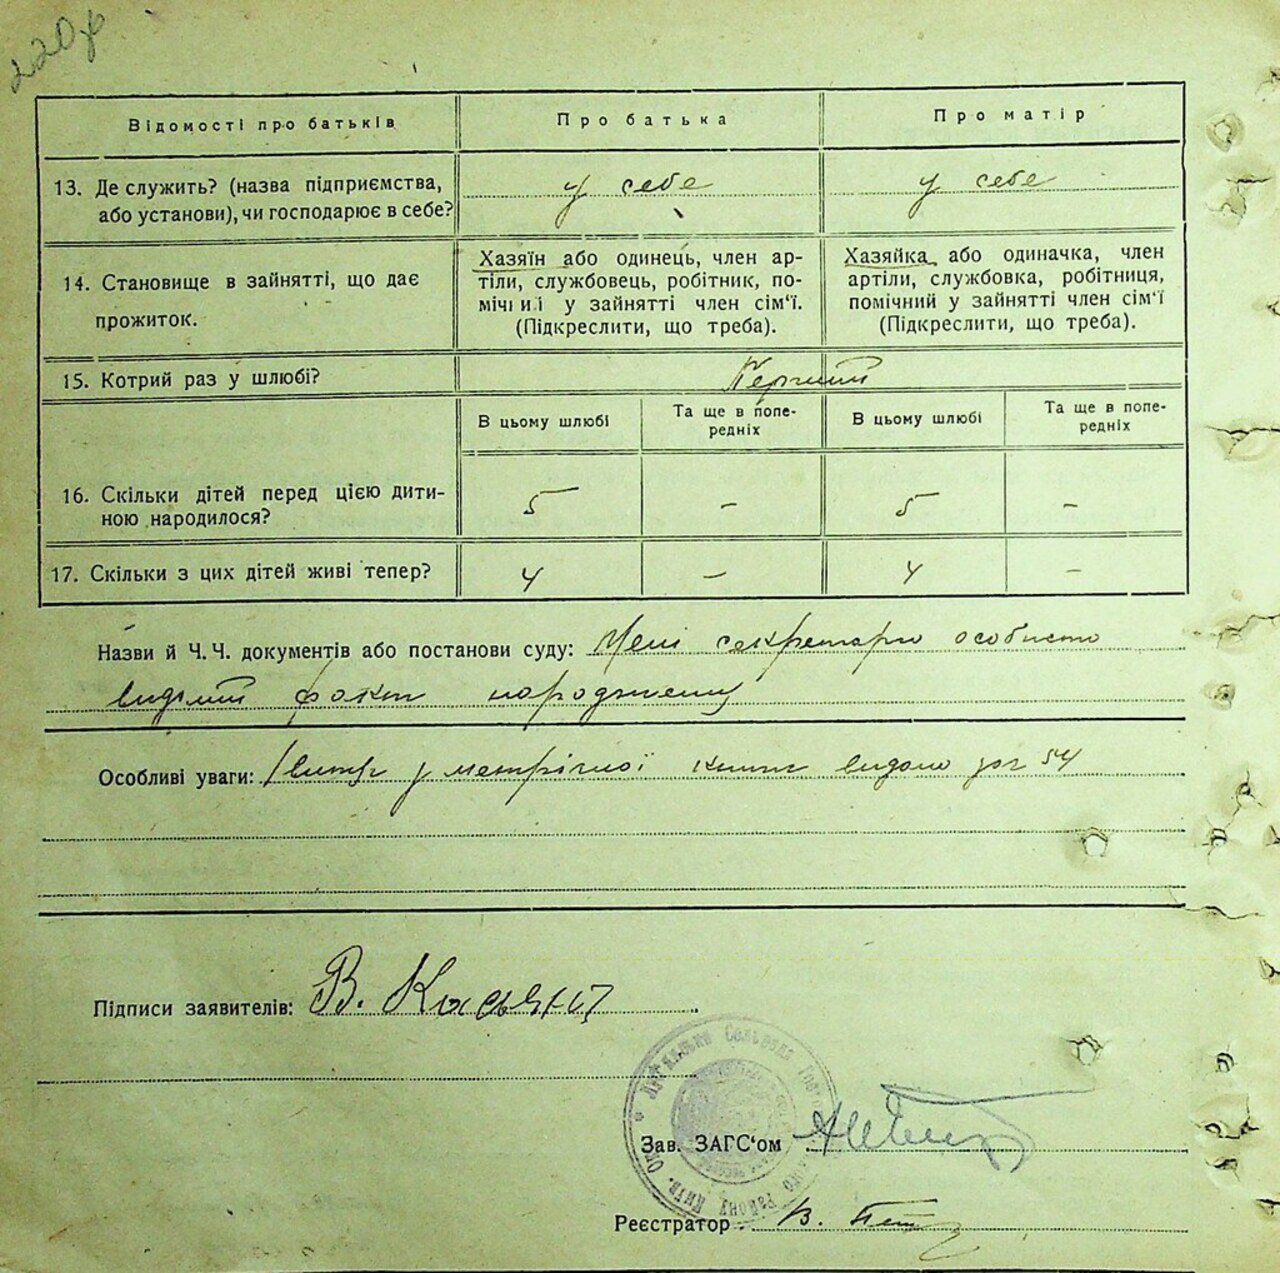 220
Відомості про батьків
Про батька
Про матір
13. Де служить? (назва підприємства,
або установи), чи господарює в себе?
у себе
у себе
14. Становище в зайнятті, що дає
прожиток.
Хазяїн або одинець, член ар-
тіли, службовець, робітник, по-
мічний у зайнятті член сім'ї.
(Підкреслити, що треба).
Хазяйка або одиначка, член
артіли, службовка, робітниця,
помічний у зайнятті член сім'ї
(Підкреслити, що треба).
15. Котрий раз у шлюбі?
Перший
В цьому шлюбі
Та ще в попе-
редніх
В цьому шлюбі
Та ще в попе-
редніх
16. Скільки дітей перед цією дити-
ною народилося?
5 – 5 –
17. Скільки з цих дітей живі тепер?
4 – 4 –
Назви й Ч.Ч. документів або постанови суду: Мені секретарю особисто
видомий факт народження
Особливі уваги: Витяг у метрічної книги видано за № 54
Підписи заявителів: В. Касьянц
Зав. ЗАГС'ом
Реєстратор В.
Сельрада
району Київ.